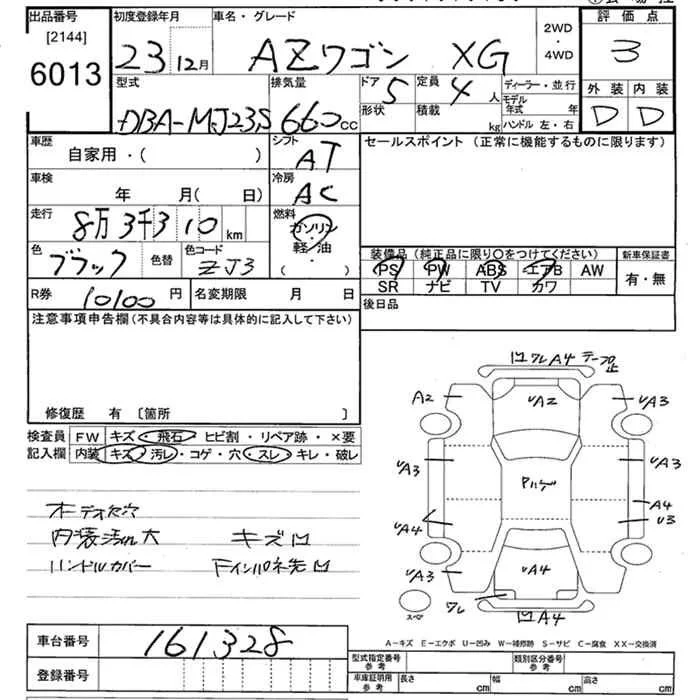 出品番号
[2144]
6013
初度登録年月
23 12月
車名・グレード
AZワゴン XG
2WD
・
4WD
評価点
3
外装 内装
D D
型式
DBA-MJ23S
排気量
660cc
ドア
5
形状
定員
4人
積載
kg
ディーラー・並行
モデル年式 年
ハンドル 左・右
車歴
自家用・( )
シフト
AT
車検
年 月(日)
冷房
AC
走行
8万3千310km
燃料
ガソリン
・
軽油
・
( )
色
ブラック
色替
色コード
ZJ3
R券
10100円
名変期限 月 日
セールスポイント (正常に機能するものに限ります)
装備品 (純正品に限り○をつけてください)
PS PW ABS エアB AW
SR ナビ TV カワ
新車保証書
有・無
後日品
注意事項申告欄 (不具合内容等は具体的に記入して下さい)
修復歴 有 〔箇所 〕
検査員 FW キズ・飛石・ヒビ割・リペア跡・×要
記入欄 内装 キズ・汚レ・コゲ・穴・スレ・キレ・破レ
内装汚れ大 キズ凹
ハンドルカバー
凹 ワレ A4 テープ止
A2
UA2
UA3
UA3
Pハゲ
UA3
UA4
A4
U3
UA3
UA4
ワレ
凹A4
スペア
A-キズ E-エクボ U-凹み W-補修跡 S-サビ C-腐食 XX-交換済
車台番号
161328
登録番号
型式指定番号
参考
類別区分番号
参考
車庫証明用
参考
長さ cm
幅 cm
高さ cm